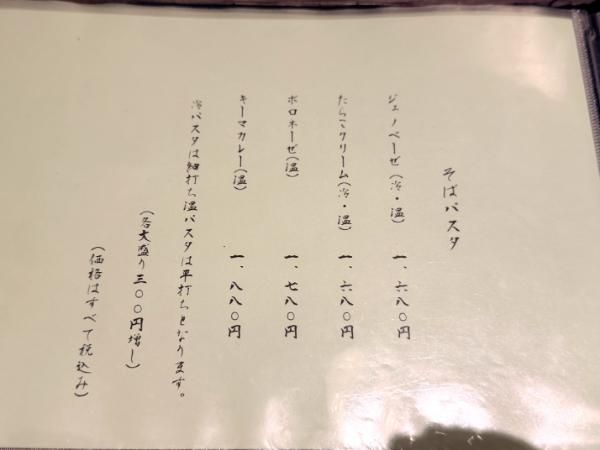 そばパスタ
ジェノベーゼ(冷・温) 一、六八〇円
たらこクリーム(冷・温) 一、六八〇円
ボロネーゼ(温) 一、七八〇円
キーマカレー(温) 一、八八〇円
冷パスタは細打ち温パスタは平打ちとなります。
(各大盛り三〇〇円増し)
(価格はすべて税込み)